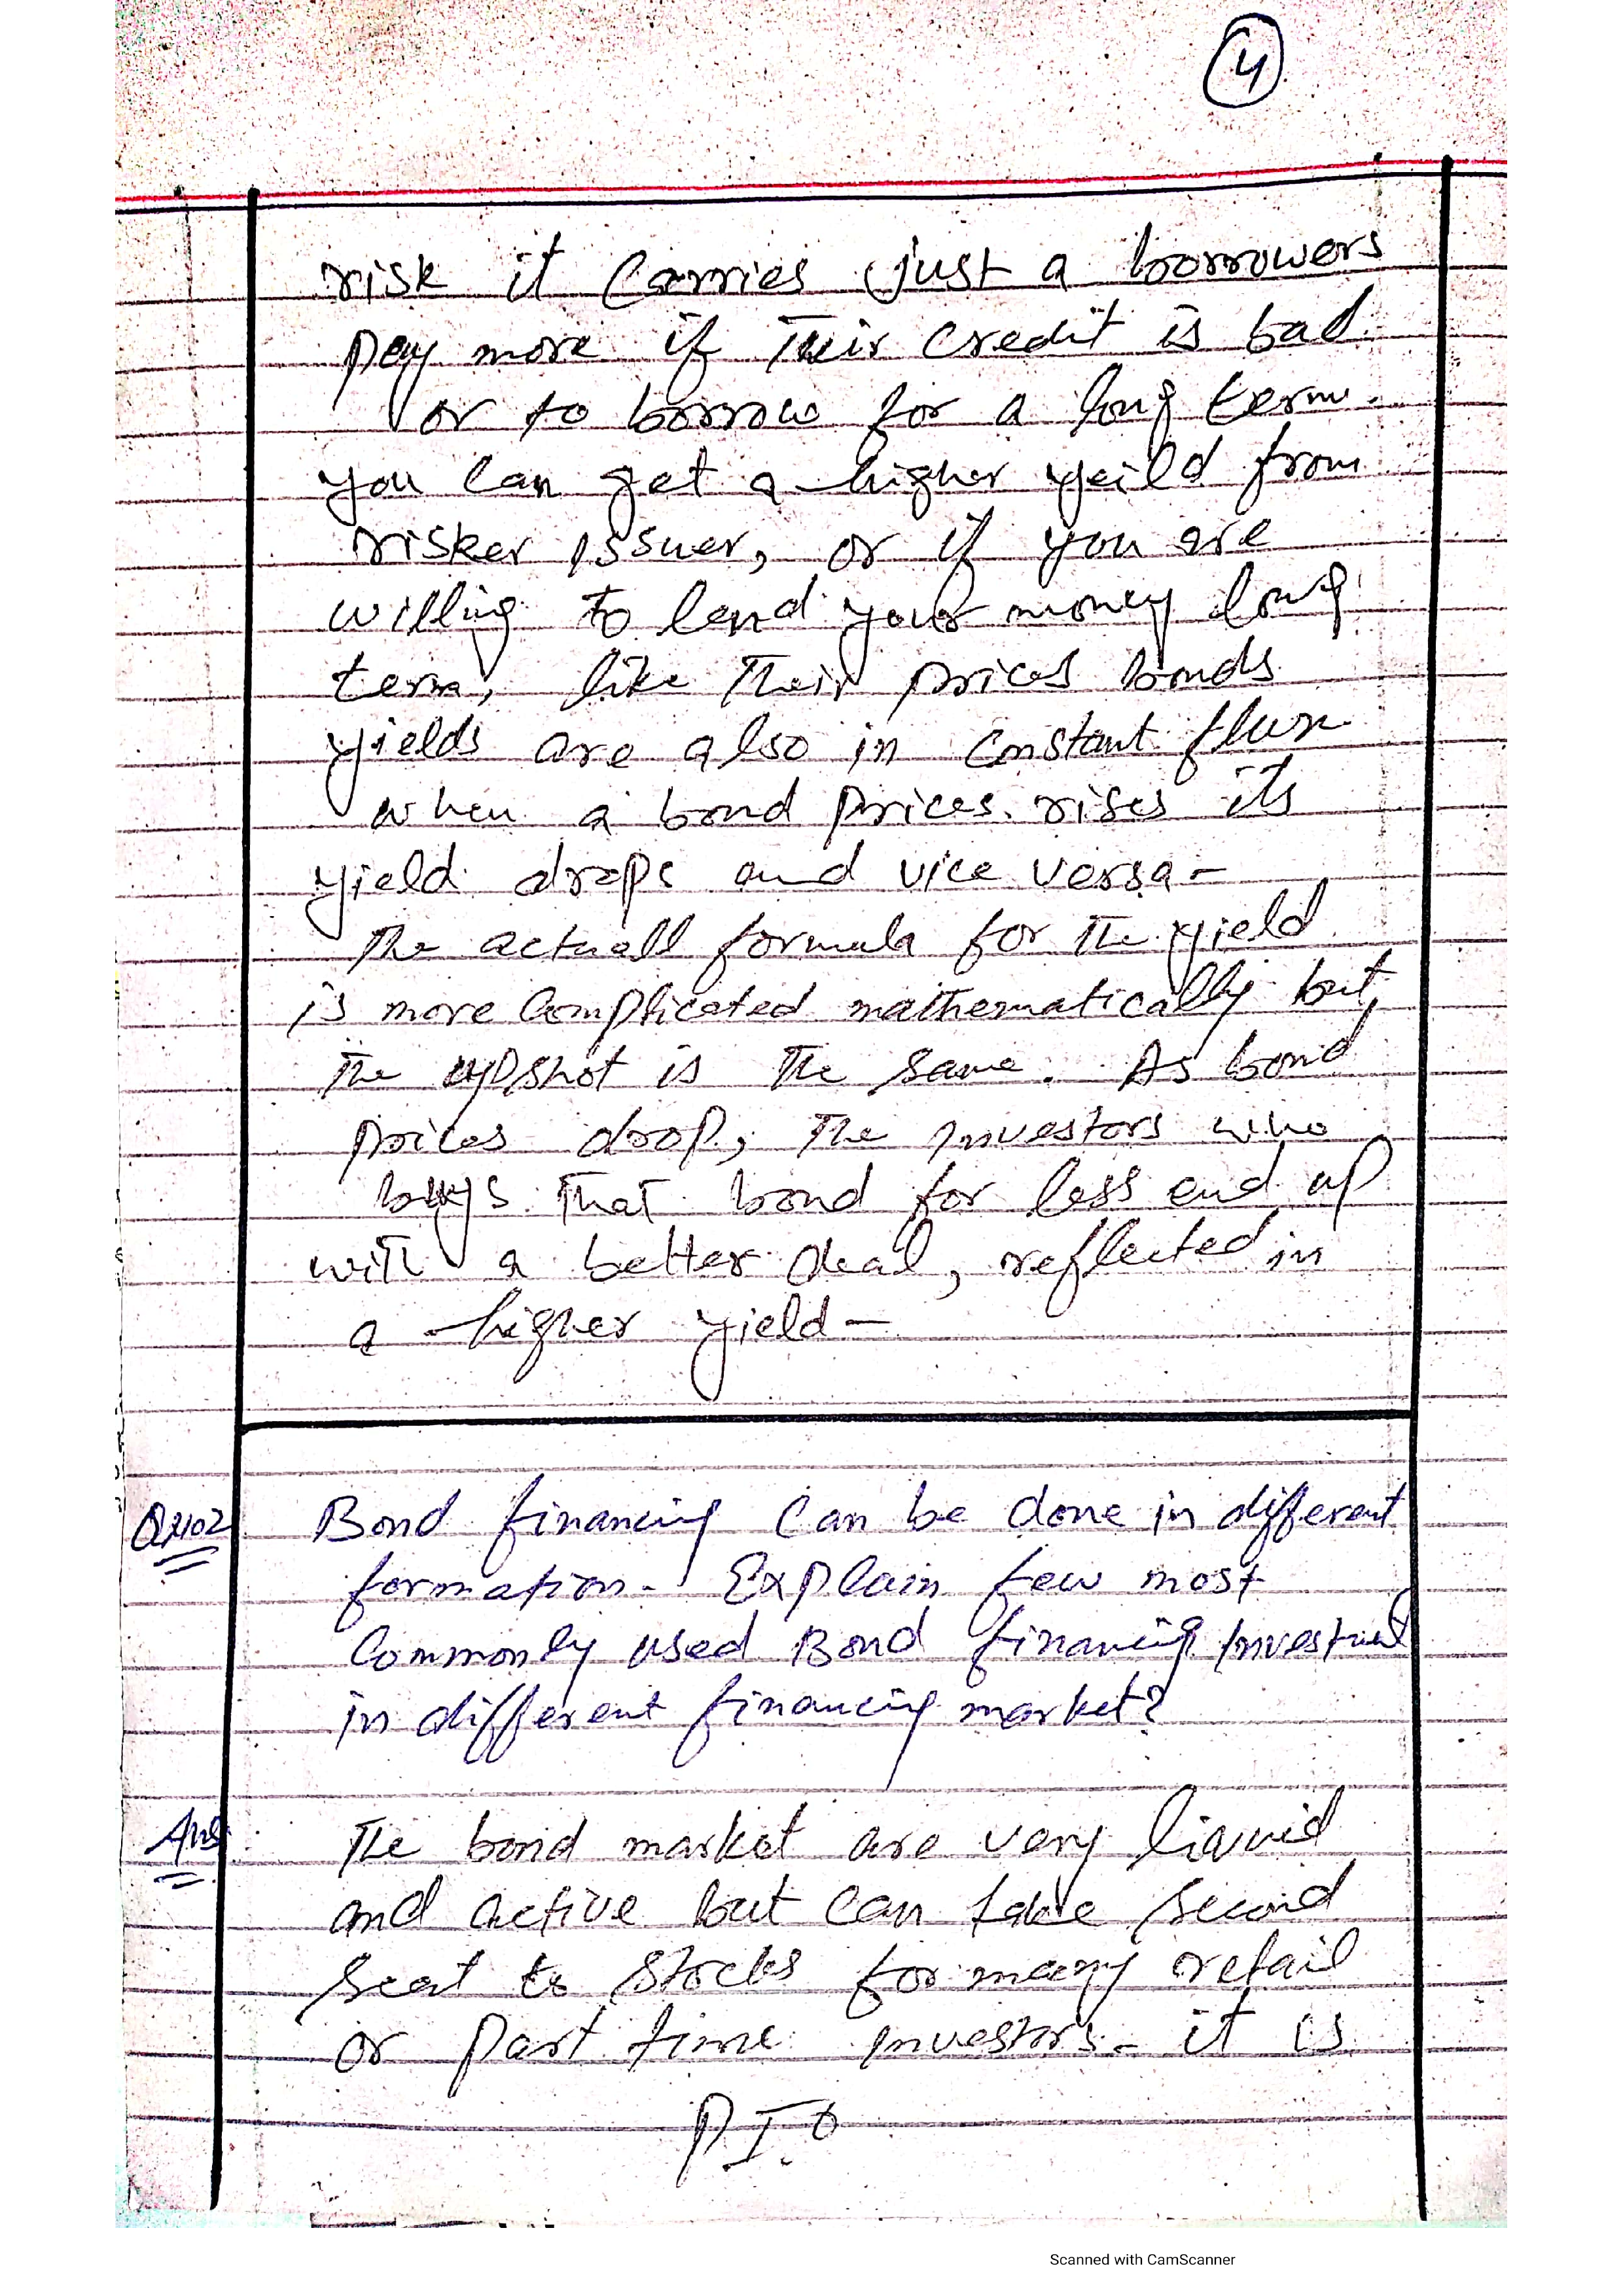 4
risk it carries just a borrowers
pay more if their credit is bad
or to borrow for a long term.
you can get a higher yeild from
risker issuer, or if you are
willing to lend your money long
term, like their prices bonds
yields are also in constant flux
when a bond prices rises its
yield drops and vice versa-
The actuall formula for the yield
is more complicated mathematically but
the upshot is the same. As bond
prices drop, the investors who
buys that bond for less end up
with a better deal, reflected in
a higher yield-
Bond financing can be done in different
formation- Explain few most
commonly used Bond financing
in different financing market?
Ans: The bond market are very liquid
and active but can take second
seat to stocks for many retail
or part time investors- it is
Scanned with CamScanner